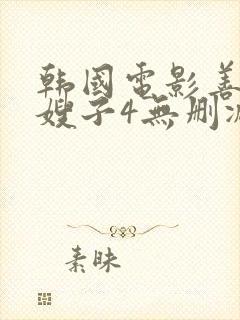 韩國電影善
嫂子4無删减
素昧